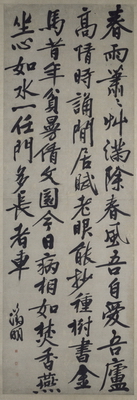 春雨蕭〻艸滿除春風吾自愛吾廬
高情時誦閒居賦老眼能抄種樹書金
馬昔年貧曼倩文園今日病相如焚香燕
坐心如水一任門多長者車
徵明